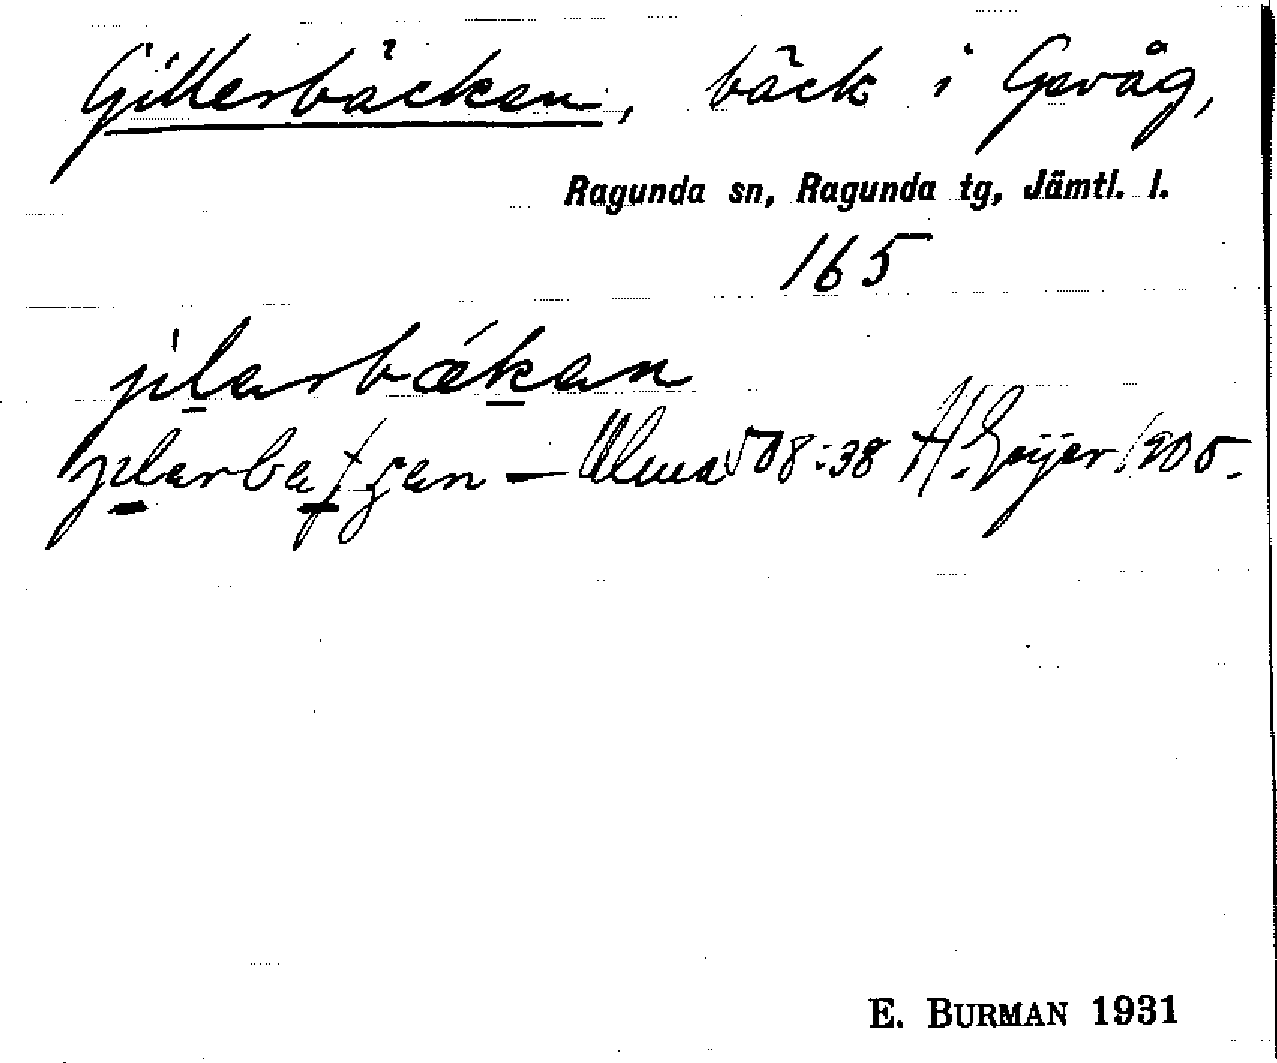 Gillerbäcken, bäck i Gevåg,
Ragunda sn, Ragunda tg, Jämtl. l.
165
jilarbækan
— Ulma 508:38 H. Geijer 1905.
E. BURMAN 1931